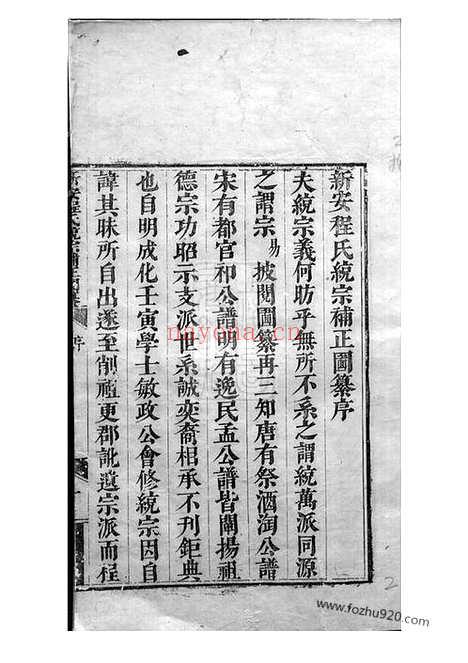 新安程氏統宗補正圖纂序
夫統宗義何昉乎無所不系之謂統萬派同源
之謂宗易披閱圖纂再三知唐有祭酒淘公譜
宋有都官祁公譜明有逸民孟公譜皆闡揚祖
德宗功昭示支派世系誠奕裔相承不刊鉅典
也自明成化壬寅學士敏政公會修統宗因自
諱其昧所自出遂至削禰更郡訛遺宗派而程
新安程氏統宗補正圖纂
序
nayona.cn
www.fozhu920.com